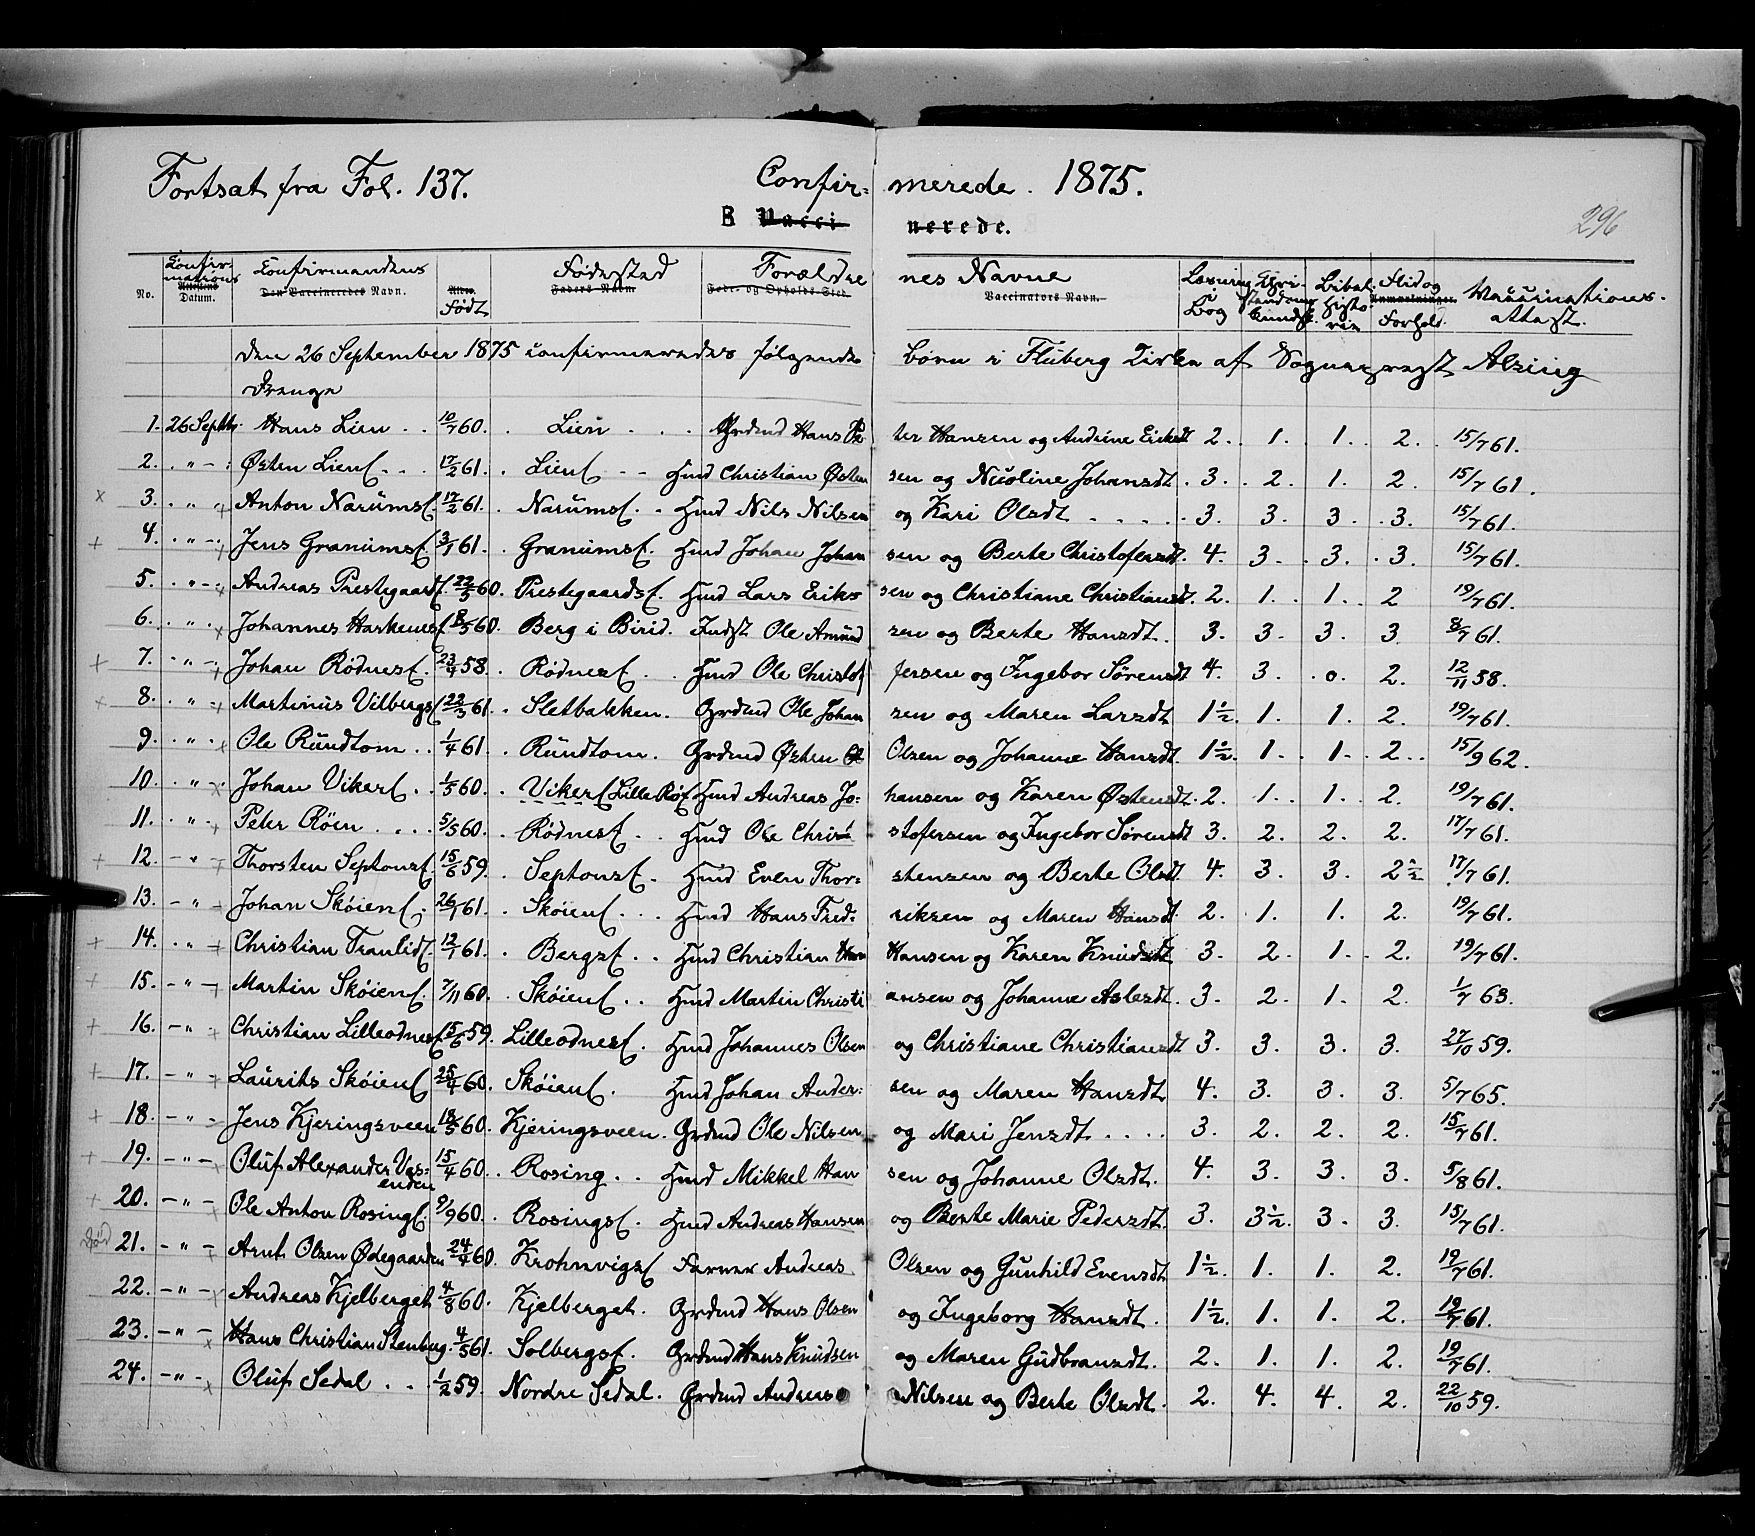 Fortsat fra Fol. 137. Confir- merede. 1875.
B Vacci nerede. 296
No. Confirmations Attestens Datum. Confirmandens Den Vaccineredes Navn. Alder. Født Fødested Faders Navn. Forældre Føde- og Opholds-Sted. nes Navne Vaccinators Navn. Læsning i Bog Christendomskundsk. Bibelhistorien Flid og Anmærkninger. Forhold. Vaccinationsattest.
Den 26 September 1875 confirmeredes følgende børn i Fluberg Kirke af Sogneprest Alsing
Drenge
1. 26 Septbr. Hans Lien . . 10/7 60. . Lien . . . Grdmd Hans Peter Hansen og Andrine Eriksdt 2. 1. 1. 2. 15/7 61.
2. . " - : Østen Lien . . . 17/2 61. . Lien - - Hmd Christian Østensen og Nicoline Johansdt . 3. . 2. 1. 2. 15/7 61.
x 3. . " . Anton Narums. 17/2 61. . Narums. . Hmd Nils Nilsen og Kari Olsdt - . . . . 3. 3. 3. . 3. 15/7 61.
+ 4. . " - . Jens Granums 3/1 61. . Granums. Hmd Johan Johansen og Berte Christofersdt. 4. 3. . 3. . 3. 15/7 61.
5. . " - . Andreas Prestegaards. 22/5 60. Prestegaards. Hmd Lars Eriksen og Christiane Christiansdt. 2. 1. . 1. . 2 19/7 61.
6. . " . . Johannes Harkenes 8/5 60. Berg i Birid. Indst Ole Amundsen og Berte Hansdt. 3. 3. 3. 3. 8/7 61.
+ 7. . " - . Johan Rødnes. 23/4 58. . Rødnes . . Hmd Ole Christofersen og Ingebor Sørensdt 4. 3. . 0. 2. 12/11 58.
x 8. . " . Martinus Vilbergs 22/3 61. . Sletbakken. Grdmd Ole Johansen og Maren Larsdt 1½. 1. 1. 2. 19/7 61.
9. . " . . Ole Rundtom . . 1/4 61. . Rundtom. Grdmd Østen Olsen og Johanne Hansdt 1½. 1. 1. 2 . . 15/9 62.
10. . " . . Johan Viker . . 1/5 60. . Viker Lille Rø Hmd Andreas Johansen og Karen Østensdt . 2. . 1 . . 1. . 2. 19/7 61.
11. . " - . Peter Röen . . . . 5/5 60. . Rødnes . . Hmd Ole Christofersen og Ingebor Sørensdt 3. 2. 2. 2. 17/7 61.
+ 12. - " - Thorsten Septons. 15/6 59. . Septons. Hmd Even Thorstensen og Berte Olsdt 4. 3. 3. 2½ 17/7 61.
13. - " - Johan Skøien . 26/1 61. . Skøien . . . Hmd Hans Fredriksen og Maren Hansdt. 2. 1. 1. 2. 19/7 61.
+ 14. . " - Christian Tranlid. 12/1 61. . Bergs . . Hmd Christian Hansen og Karen Knudsdt 3. 2. 1. . 2. 19/7 61.
+ 15. - " - Martin Skøien . 7/11 60. . Skøien . . Hmd Martin Christiansen og Johanne Aslesdt. 3. 2. 1. 2. 1/7 63.
+ 16. - " . Christian Lilleodnes 15/6 59. Lilleodnes. Hmd Johannes Olsen og Christiane Christiansdt 3. 3. 3. 3. 27/10 59.
+ 17. - " - Laurits Skøien 25/4 60. Skøien . Hmd Johan Andersen og Maren Hansdt. 4. 3. 3. 3. 5/7 65.
+ 18. - " - Jens Kjeringsveen 18/5 60. Kjeringsveen. Grdmd Ole Nilsen og Mari Jensdt . . . . 3. 2. 2. 2. 15/7 61.
+ 19. - " - Oluf Alexander Vesenden 15/4 60. . Rosing. . . Hmd Mikkel Hansen og Johanne Olsdt. 4. 3. 3. 3. 5/8 61.
+ 20. - " - Ole Anton Rosing. 9/9 60. . Rosings. Hmd Andreas Hansen og Berte Marie Pedersdt. 3. 3½. 3. 3. 15/7 61.
Død 21. - " - Arnt Olsen Ødegaarden 24/4 60. Krohnvigs Farver Andreas Olsen og Gunhild Evensdt 1½. 1. 1. 2. 19/7 61.
22. - " - Andreas Kjelberget 4/8 60. Kjelberget. Grdmd Hans Olsen og Ingeborg Hansdt. 1½. 1. 1. 2. 19/7 61.
23. - " - Hans Christian Stenberg. 4/5 61. Solbergs. Grdmd Hans Knudsen og Maren Gudbransdt. 2. 1. 1. 2. 19/7 61.
24. - " - Oluf Sedal . . . 1/2 59. Nordre Sedal. Grdmd Andreas Nilsen og Berte Olsdt. 2. 4. 4. 2. 22/10 59.